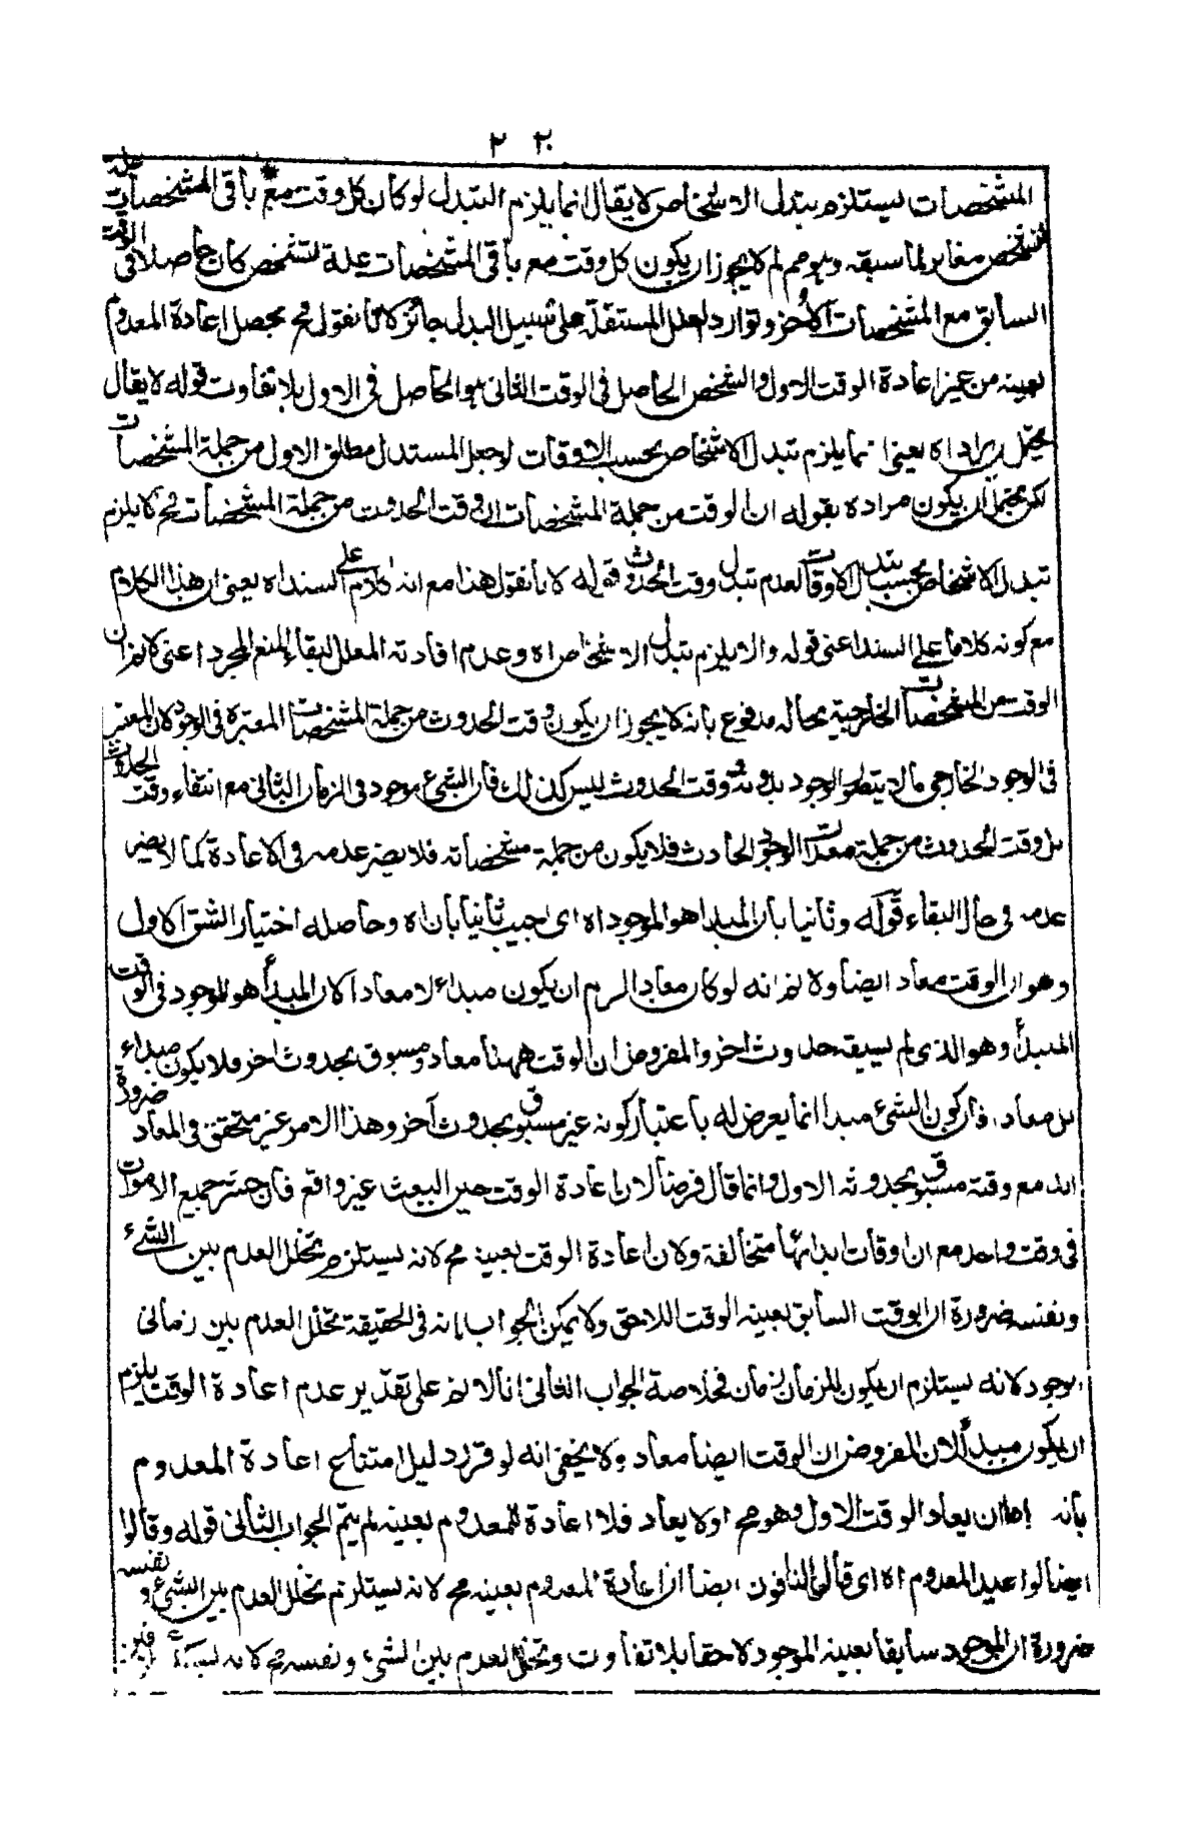 ٢٢٠
المشخصات يستلزم تبدل الاشخاص لا يقال انما يلزم التبدل لو كان كل وقت مع باقى المشخصات علة
لتشخص مغاير لما سبقه وهو مم لم لا يجوز ان يكون كل وقت مع باقى المشخصات علة لتشخص كان حاصلا فى الوقت
السابق مع المشخصات الأخر وتوارد العلل المستقلة على سبيل البدل جائز لانا نقول مح يحصل اعادة المعدوم
بعينه من غير اعادة الوقت الاول والشخص الحاصل فى الوقت الثانى هو الحاصل فى الاول بلا تفاوت قوله لا يقال
يحتمل ان يراد اه يعنى انما يلزم تبدل الاشخاص بحسب الاوقات لو جعل المستدل مطلق الاول من جملة المشخصات
لكن يحتمل ان يكون مراده بقوله ان الوقت من جملة المشخصات ان وقت الحدوث من جملة المشخصات فح لا يلزم
تبدل الاشخاص بحسب تبدل الاوقات لعدم تبدل وقت الحدوث قوله لانا نقول هذا مع انه كلام على السند اه يعنى ان هذا الكلام
مع كونه كلاما على السند اعنى قوله والا يلزم تبدل الاشخاص اه وعدم افادته المعلل لبقاء المنع المجرد اعنى لانم ان
الوقت من المشخصات الخارجية بحاله مدفوع بانه لا يجوز ان يكون وقت الحدوث من جملة المشخصات المعتبرة فى الوجود لان المعتبر
فى الوجود الخارجى ما لا يتصور الوجود بدونه ووقت الحدوث ليس كذلك فان الشئ موجود فى الزمان الثانى مع انتفاء وقت الحدوث
بل وقت الحدوث من جملة معدات الوجود الحادث فلا يكون من جملة مشخصاته فلا يضر عدمه فى الاعادة كما لا يضر
عدمه فى حال البقاء قوله وثانيا بان المبدا هو الموجود اه اى اجيب ثانيا بان اه وحاصله اختيار الشق الاول
وهو ان الوقت معاد ايضا ولا نم انه لو كان معادا لزم ان يكون مبداء لا معادا لان المبدأ هو الموجود فى الوقت
المبدأ وهو الذى لم يسبقه حدوث اخر والمفروض ان الوقت ههنا معاد ومسبوق بحدوث اخر فلا يكون مبداء
بل معاد، فان كون الشئ مبدا انما يعرض له باعتبار كونه غير مسبوق بحدوث آخر وهذا الامر غير متحقق فى المعاد ضرورة
انه مع وقته مسبوق بحدوثه الاول وانما قال فرضا لان اعادة الوقت حين البعث غير واقع فان حشر جميع الاموات
فى وقت واحد مع ان اوقات ابدائها متخالفة ولان اعادة الوقت بعينه مح لانه يستلزم تخلل العدم بين الشئ
ونفسه ضرورة ان الوقت السابق بعينه الوقت اللاحق ولا يمكن الجواب بانه فى الحقيقة تخلل العدم بين زمانى
الوجود لانه يستلزم ان يكون للزمان زمان فخلاصة الجواب الثانى انا لا نم على تقدير عدم اعادة الوقت يلزم
ان يكون مبدأ لان المفروض ان الوقت ايضا معاد ولا يخفى انه لو قرر دليل امتناع اعادة المعدوم
بانه اما ان يعاد الوقت الاول وهو مح او لا يعاد فلا اعادة للمعدوم بعينه لم يتم الجواب الثانى قوله وقالوا
ايضا لو اعيد المعدوم اه اى قال النافون ايضا ان اعادة المعدوم بعينه مح لانه يستلزم تخلل العدم بين الشئ ونفسه
ضرورة ان الموجود سابقا بعينه الموجود لاحقا بلا تفاوت وتخلل العدم بين الشئ ونفسه مح لانه